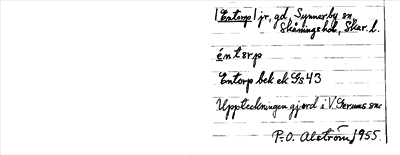 Entorp jr, gd, Synnerby sn,
Skånings hd, Skar. l.
éntərp
Entorp bek ek Gs 43
Uppteckningen gjord i V. Gerums sn.
P.-O. Alström 1955.